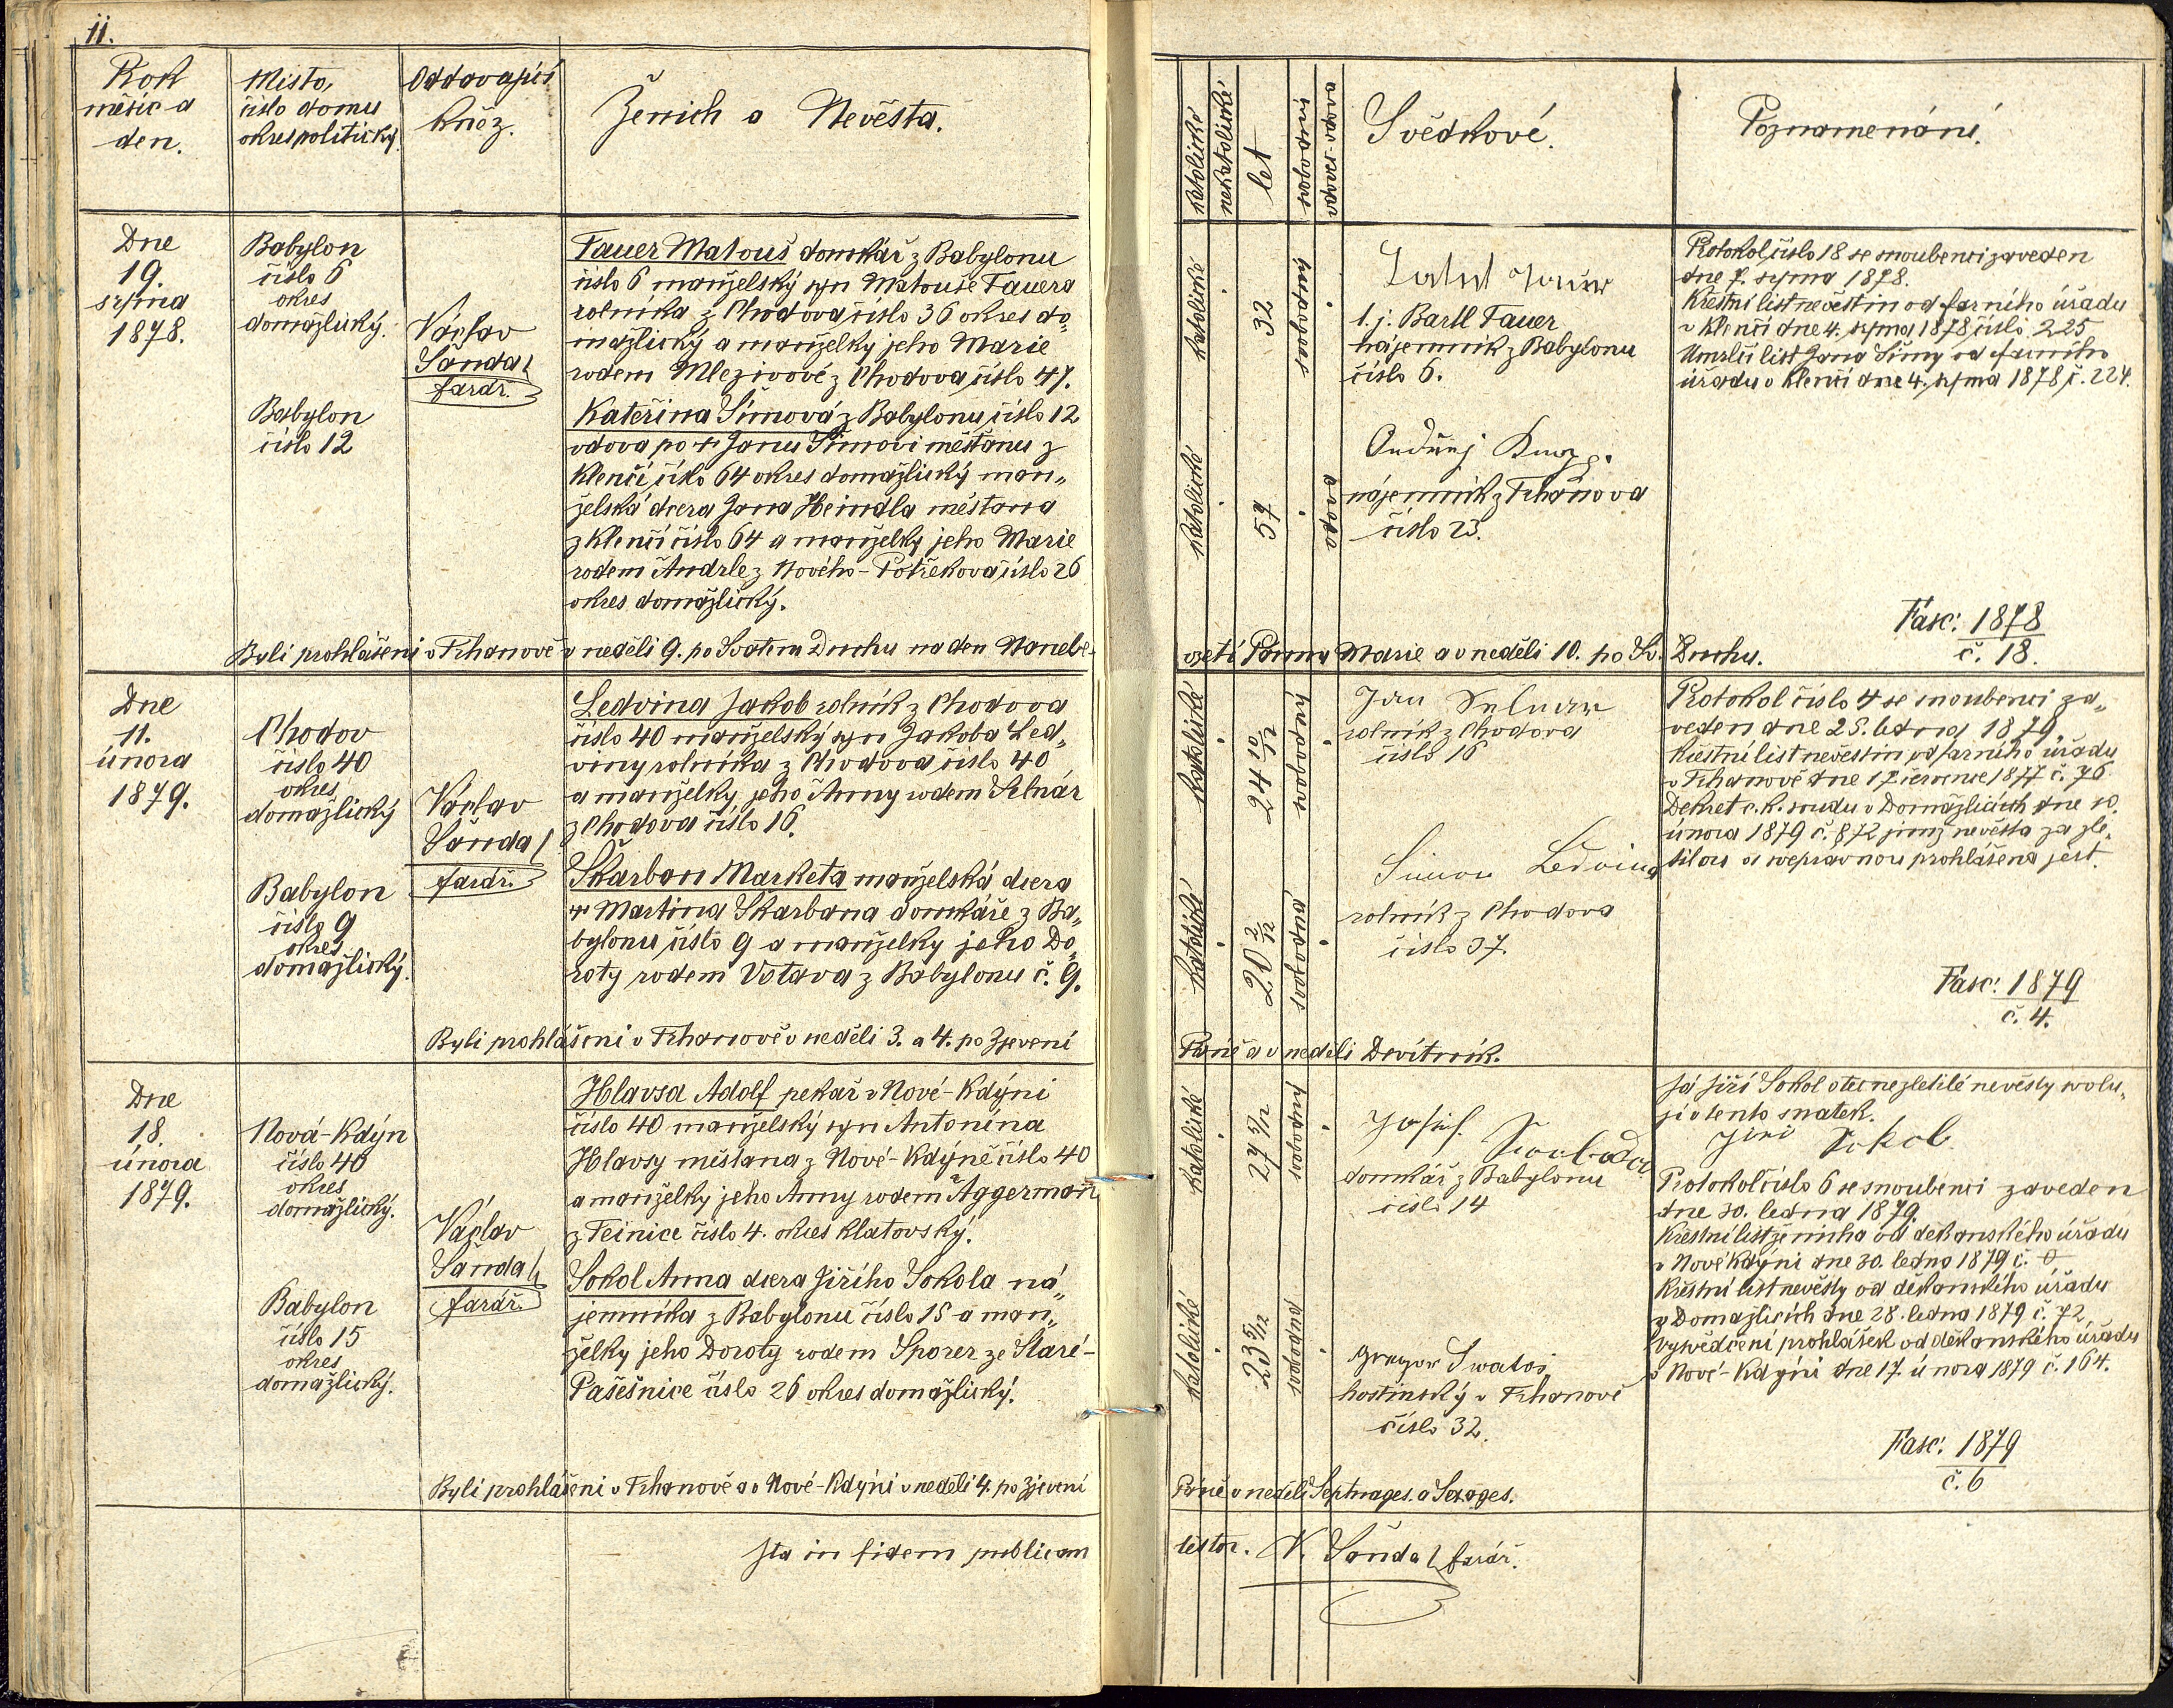 11.
Rok
měsíc a
den.
Místo,
číslo domu
okres politický.
Oddávající
kněz.
Ženich a Nevěsta.
katolické
nekatolické
let
svobodní
vdov.
Svědkové.
Poznamenání.
Dne
19.
srpna
1878.
Babylon
číslo 6
okres
domažlický.
Babylon
číslo 12
Václav
Šanda
farář.
Tauer Matouš domkář z Babylonu
číslo 6 manželský syn Matouše Tauera
rolníka z Chodova číslo 36 okres do„
mažlický a manželky jeho Marie
rodem Mlezivové z Chodova číslo 47.
Kateřina Šimová z Babylonu číslo 12
vdova po + Janu Šimovi měšťanu z
Klenčí číslo 64 okres domažlický man„
želská dcera Jana Heindla měšťana
z Klenčí číslo 64 a manželky jeho Marie
rodem Andrle z Nového-Postřekova číslo 26
okres domažlický.
Byli prohlášeni v Trhanově v neděli 9. po Svatém Duchu na den Nanebe-
katolické
32
svobodný
katolické
57
vdova
t. j. Bartl Tauer
nájemník z Babylonu
číslo 6.
Ondřej
nájemník z Trhanova
číslo 23.
Protokol číslo 18 se snoubenci zaveden
dne 7. srpna 1878.
Křestní list nevěstin od farního úřadu
v Klenčí dne 4. srpna 1878 číslo 225
Úmrlčí list Jana Šimy od farního
úřadu v Klenčí dne 4. srpna 1878 č. 224.
Fasc: 1878
č. 18.
vzetí Panny Marie a v neděli 10. po Sv. Duchu.
Dne
11.
února
1879.
Chodov
číslo 40
okres
domažlický
Babylon
číslo 9
okres
domažlický.
Václav
Šanda
farář.
Ledvina Jakob rolník z Chodova
číslo 40 manželský syn Jakoba Led„
viny rolníka z Chodova číslo 40
a manželky jeho Anny rodem Selnar
z Chodova číslo 16.
Škarban Marketa manželská dcera
+ Martina Škarbana domkáře z Ba„
bylonu číslo 9 a manželky jeho Do„
roty rodem Votava z Babylonu č. 9.
Byli prohlášeni v Trhanově v neděli 3. a 4. po Zjevení
katolické
24 10/12
svobodný
katolické
20 2/12
svobodná
Jan Selnar
rolník z Chodova
číslo 16
Simon Ledvina
rolník z Chodova
číslo 37.
Protokol číslo 4 se snoubenci za„
veden dne 25. ledna 1879.
Křestní list nevěstin od farního úřadu
v Trhanově dne 17. července 1877 č. 76
Dekret c. k. soudu v Domažlicích dne 10.
února 1879 č. 872 jímž nevěsta za zle„
tilou a svéprávnou prohlášena jest.
Fasc: 1879
č. 4.
Páně a v neděli Devítník.
Dne
18.
února
1879.
Nová-Kdýn
číslo 40
okres
domažlický.
Babylon
číslo 15
okres
domažlický.
Václav
Šanda
farář.
Hlavsa Adolf pekař v Nové-Kdýni
číslo 40 manželský syn Antonína
Hlavsy měšťana z Nové-Kdýně číslo 40
a manželky jeho Anny rodem Aggermann
z Teinice číslo 4. okres Klatovský.
Sokol Anna dcera Jiřího Sokola ná„
jemníka z Babylonu číslo 15 a man„
želky jeho Doroty rodem Sporer ze Staré-
Pašešnice číslo 26 okres domažlický.
Byli prohlášeni v Trhanově a v Nové-Kdýni v neděli 4. po Zjevení
katolické
27 5/12
svobodný
katolické
23 5/12
svobodná
Josef
domkář z Babylonu
číslo 14
Gregor Swatoš
hostinský v Trhanově
číslo 32.
Já Jiří Sokol otec nezletilé nevěsty svolu„
ji v tento sňatek.
Jiri Sokol
Protokol číslo 6 se snoubenci zaveden
dne 30. ledna 1879.
Křestní list ženicha od děkanského úřadu
v Nové Kdýni dne 30. ledna 1879 č. 0
Křestní list nevěsty od děkanského úřadu
v Domažlicích dne 28. ledna 1879 č. 72
Vysvědčení prohlášek od děkanského úřadu
v Nové-Kdýni dne 17. února 1879 č. 164.
Fasc: 1879
č. 6
Páně v neděli Septuages. a Sexages.
Ita in fidem publicam
testor. V. Šanda farář.